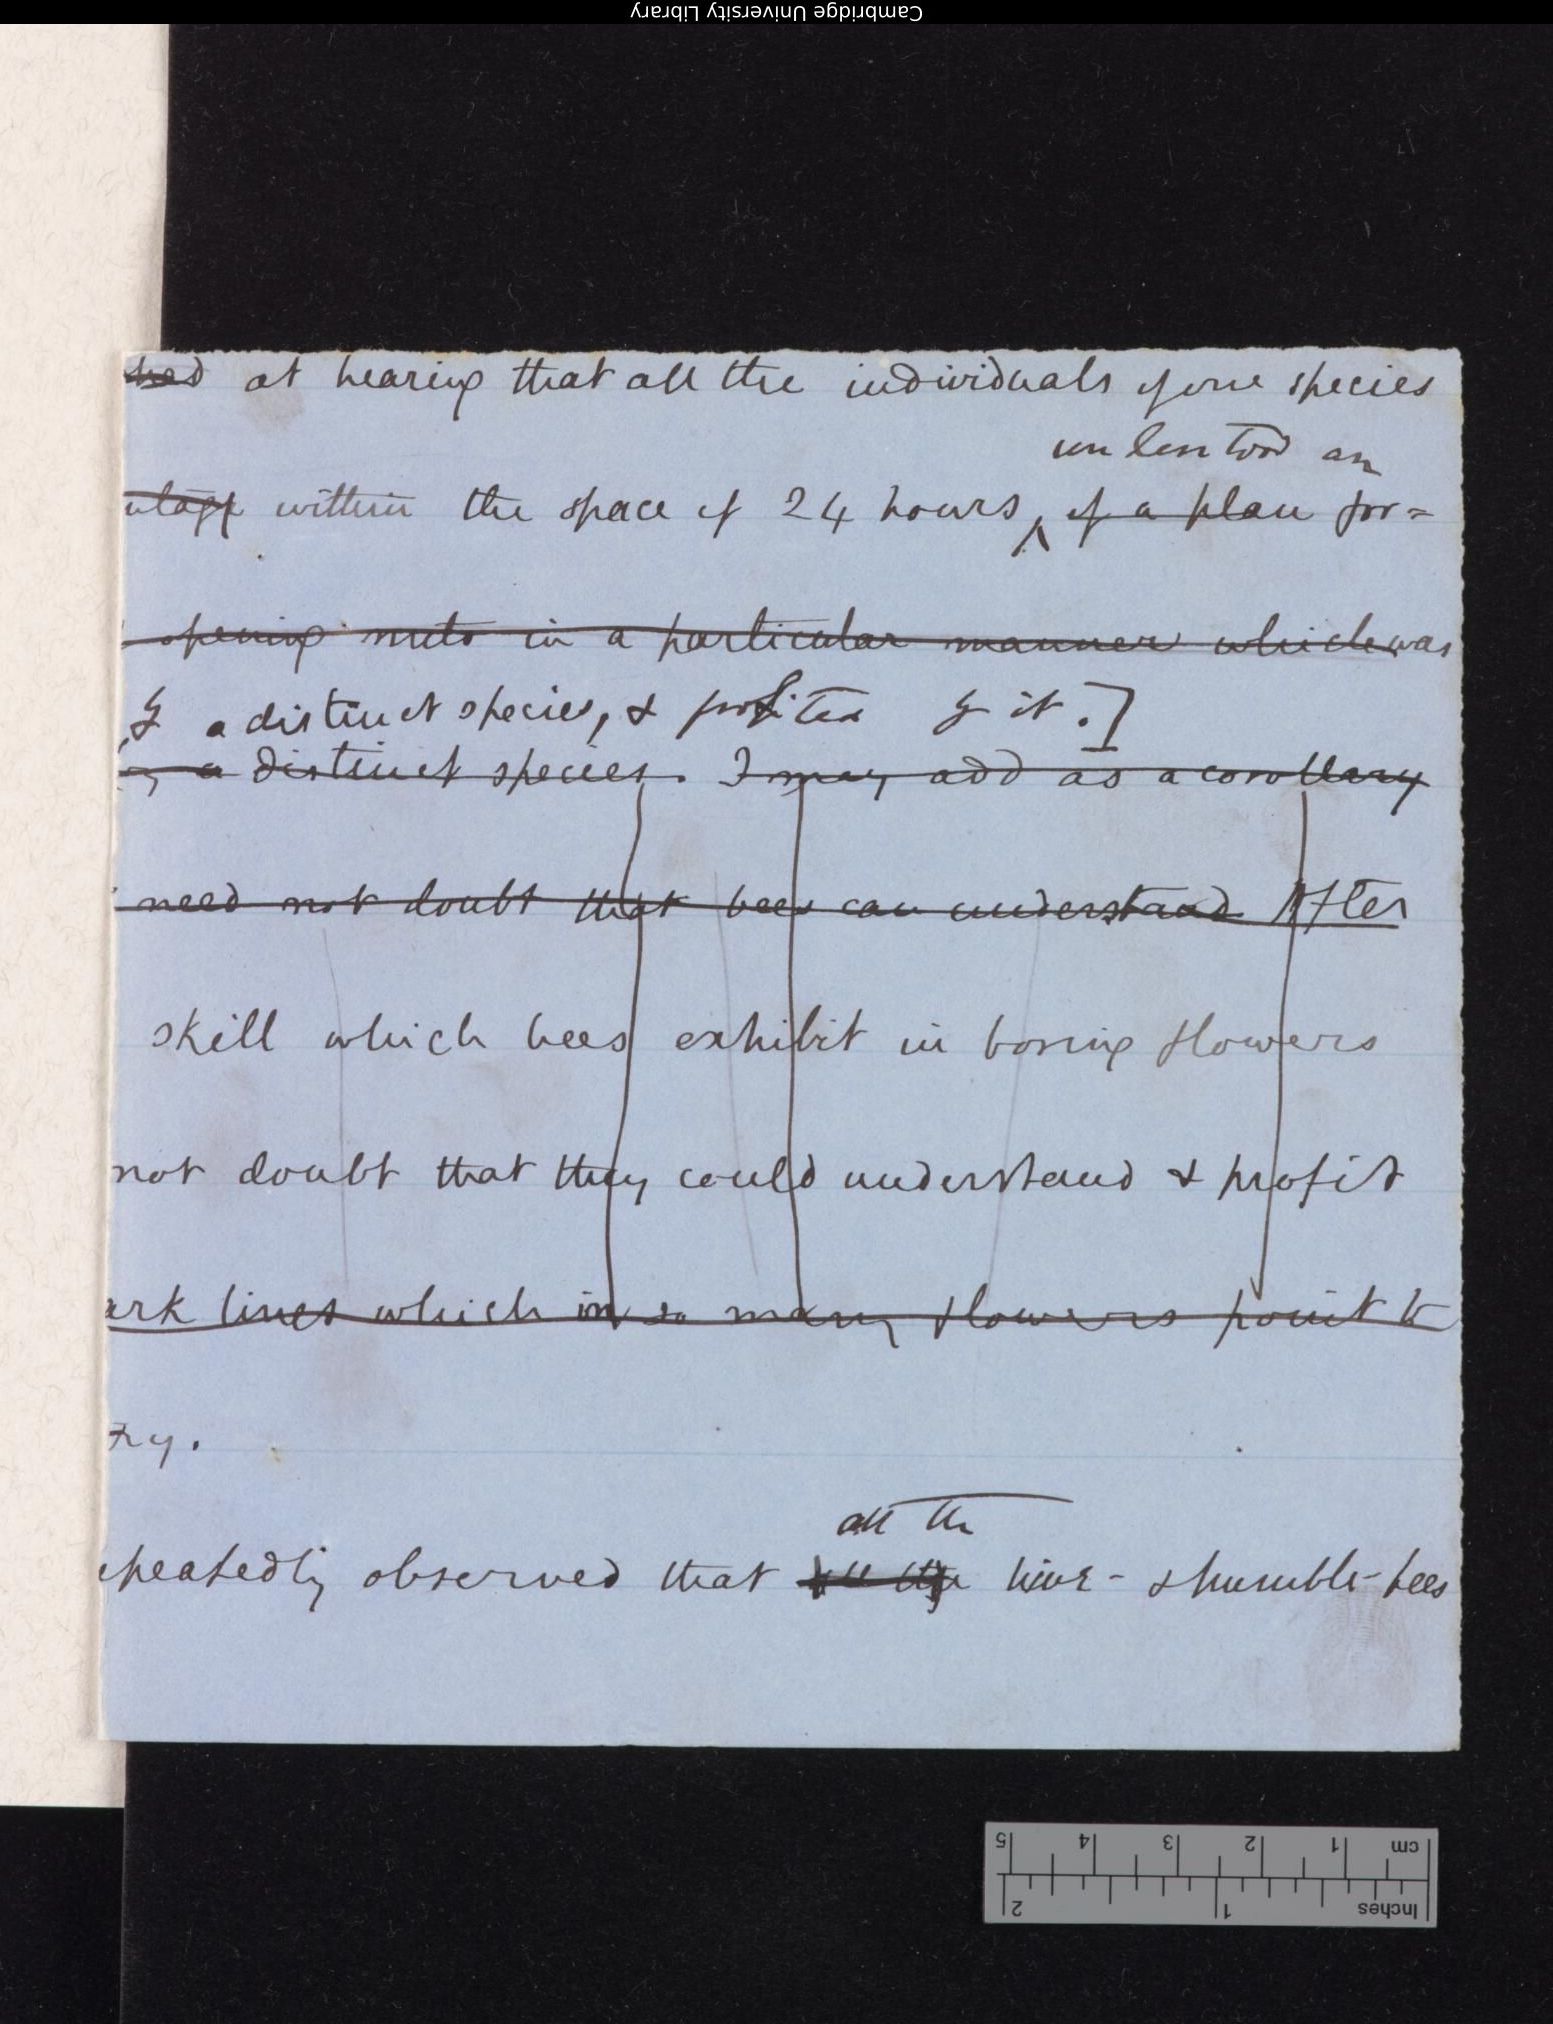 Cambridge University Library
at hearing that all the individuals of one species
understood an
within the space of 24 hours, of a plan for=
opening nuts in a particular manner which was
by a distinct species, & profited by it.]
by a distinct species. I may add as a corollary
need not doubt that bees can understand After
skill which bees exhibit in boring flowers
not doubt that they could understand & profit
ark lines which in so many flowers point to
try.
epeatedly observed that all the hive- & humble-bees
all the
5 4 3 2 1 cm
2 1 Inches